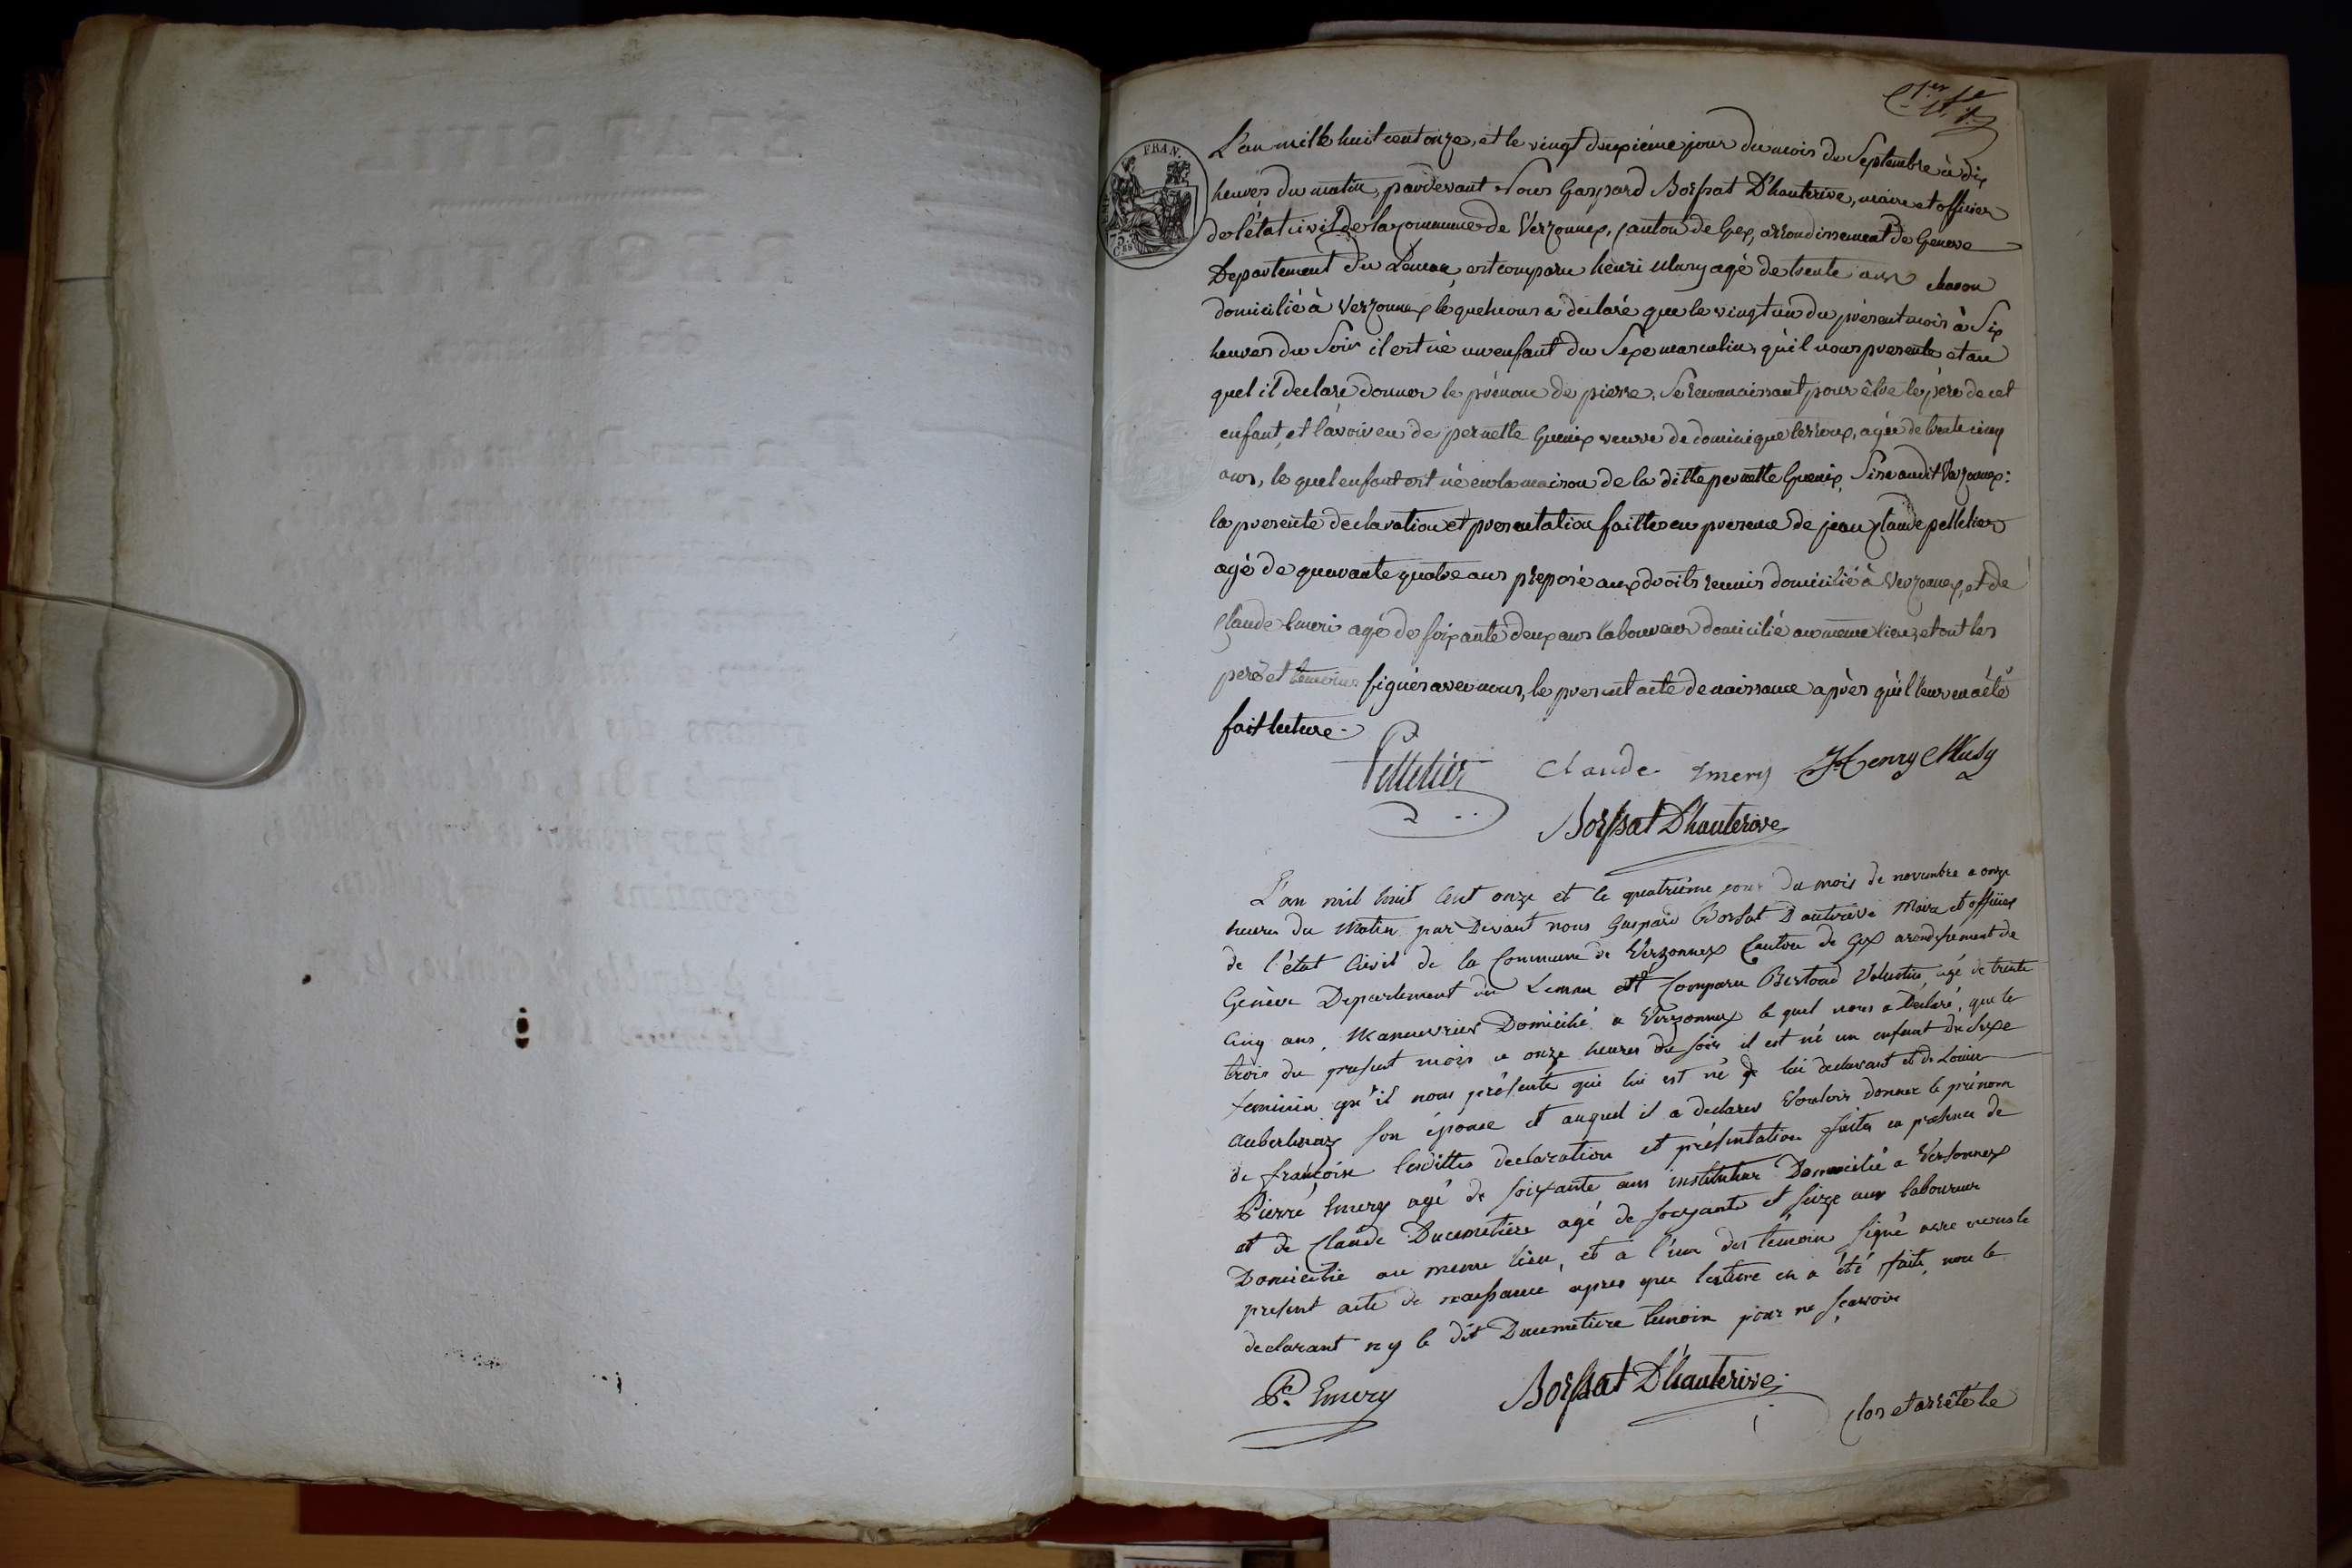 1er f.t
FRAN.
75
Ces
L'an mille huit cent onze, et le vingt deuxiéme jour du mois de Septembre à dix
heures du matin, pardevant Nous Gaspard Borssat D'hauterive, maire et officier
de l'état civil de la commune de Verzonnex, canton de Gex, arrondissement de Geneve
Departement du Leman, est comparu henri Musy agé de trente ans
domicilié à Verzonnex lequel nous a declaré que le vingt un du présent mois à Six
heures du Soir il est né un enfant du Sexe masculin, qu'il nous presente et au
quel il declare donner le prénom de pierre, Se reconnaissant pour être le père de cet
enfant, et l'avoir eu de pernette Guenix veuve de dominique , agée de trente cinq
ans, le quel enfant est né en la maison de la ditte pernette Guenix, Sise audit Verzonnex:
la presente declaration et presentation faittes en presence de jean Claude pelletier
agé de quarante quatre ans preposé aux droits reunis domicilié à Verzonnex, et de
Claude Emeri agé de soixante deux ans laboureur domicilié au meme lieu, et ont les
pere et temoins signés avec nous, le present acte de naissance après qu'il leur en a été
fait lecture.
Pelletier Claude Emery Henry Musy
Borssat D'hauterive
L'an mil huit cent onze et le quatriéme jour du mois de novembre a onze
heures du Matin par Devant nous Gaspard Borsat D'autrive Maire et officier
de l'état Civil de la Commune de Verzonnex Canton de Gex arondissement de
Genève Departement du Leman est Comparu Bertrand Valentin, agé de trente
Cinq ans, Manuvrier Domicilié a Verzonnex le quel nous a Declaré, que le
trois du present mois a onze heures du soir il est né un enfant du sexe
feminin qu'il nous présente qui lui est né de lui declarant et de Louise
son épouse et auquel il a declarer Vouloir donner le prénom
de françoise lesdittes declaration et présentation faites en presence de
Pierre Emery agé de soixante ans instituteur Domicilié a Versonnex
et de Claude Ducimetiere agé de soixante et seize ans laboureur
Domicilié au meme lieu, et a l'un des témoin signé avec nous le
present acte de naissance apres que lecture en a été faite, non le
declarant ny le dit Ducimetiere temoin pour ne scavoir
P. Emery Borssat D'hauterive
Clos et arrêté le